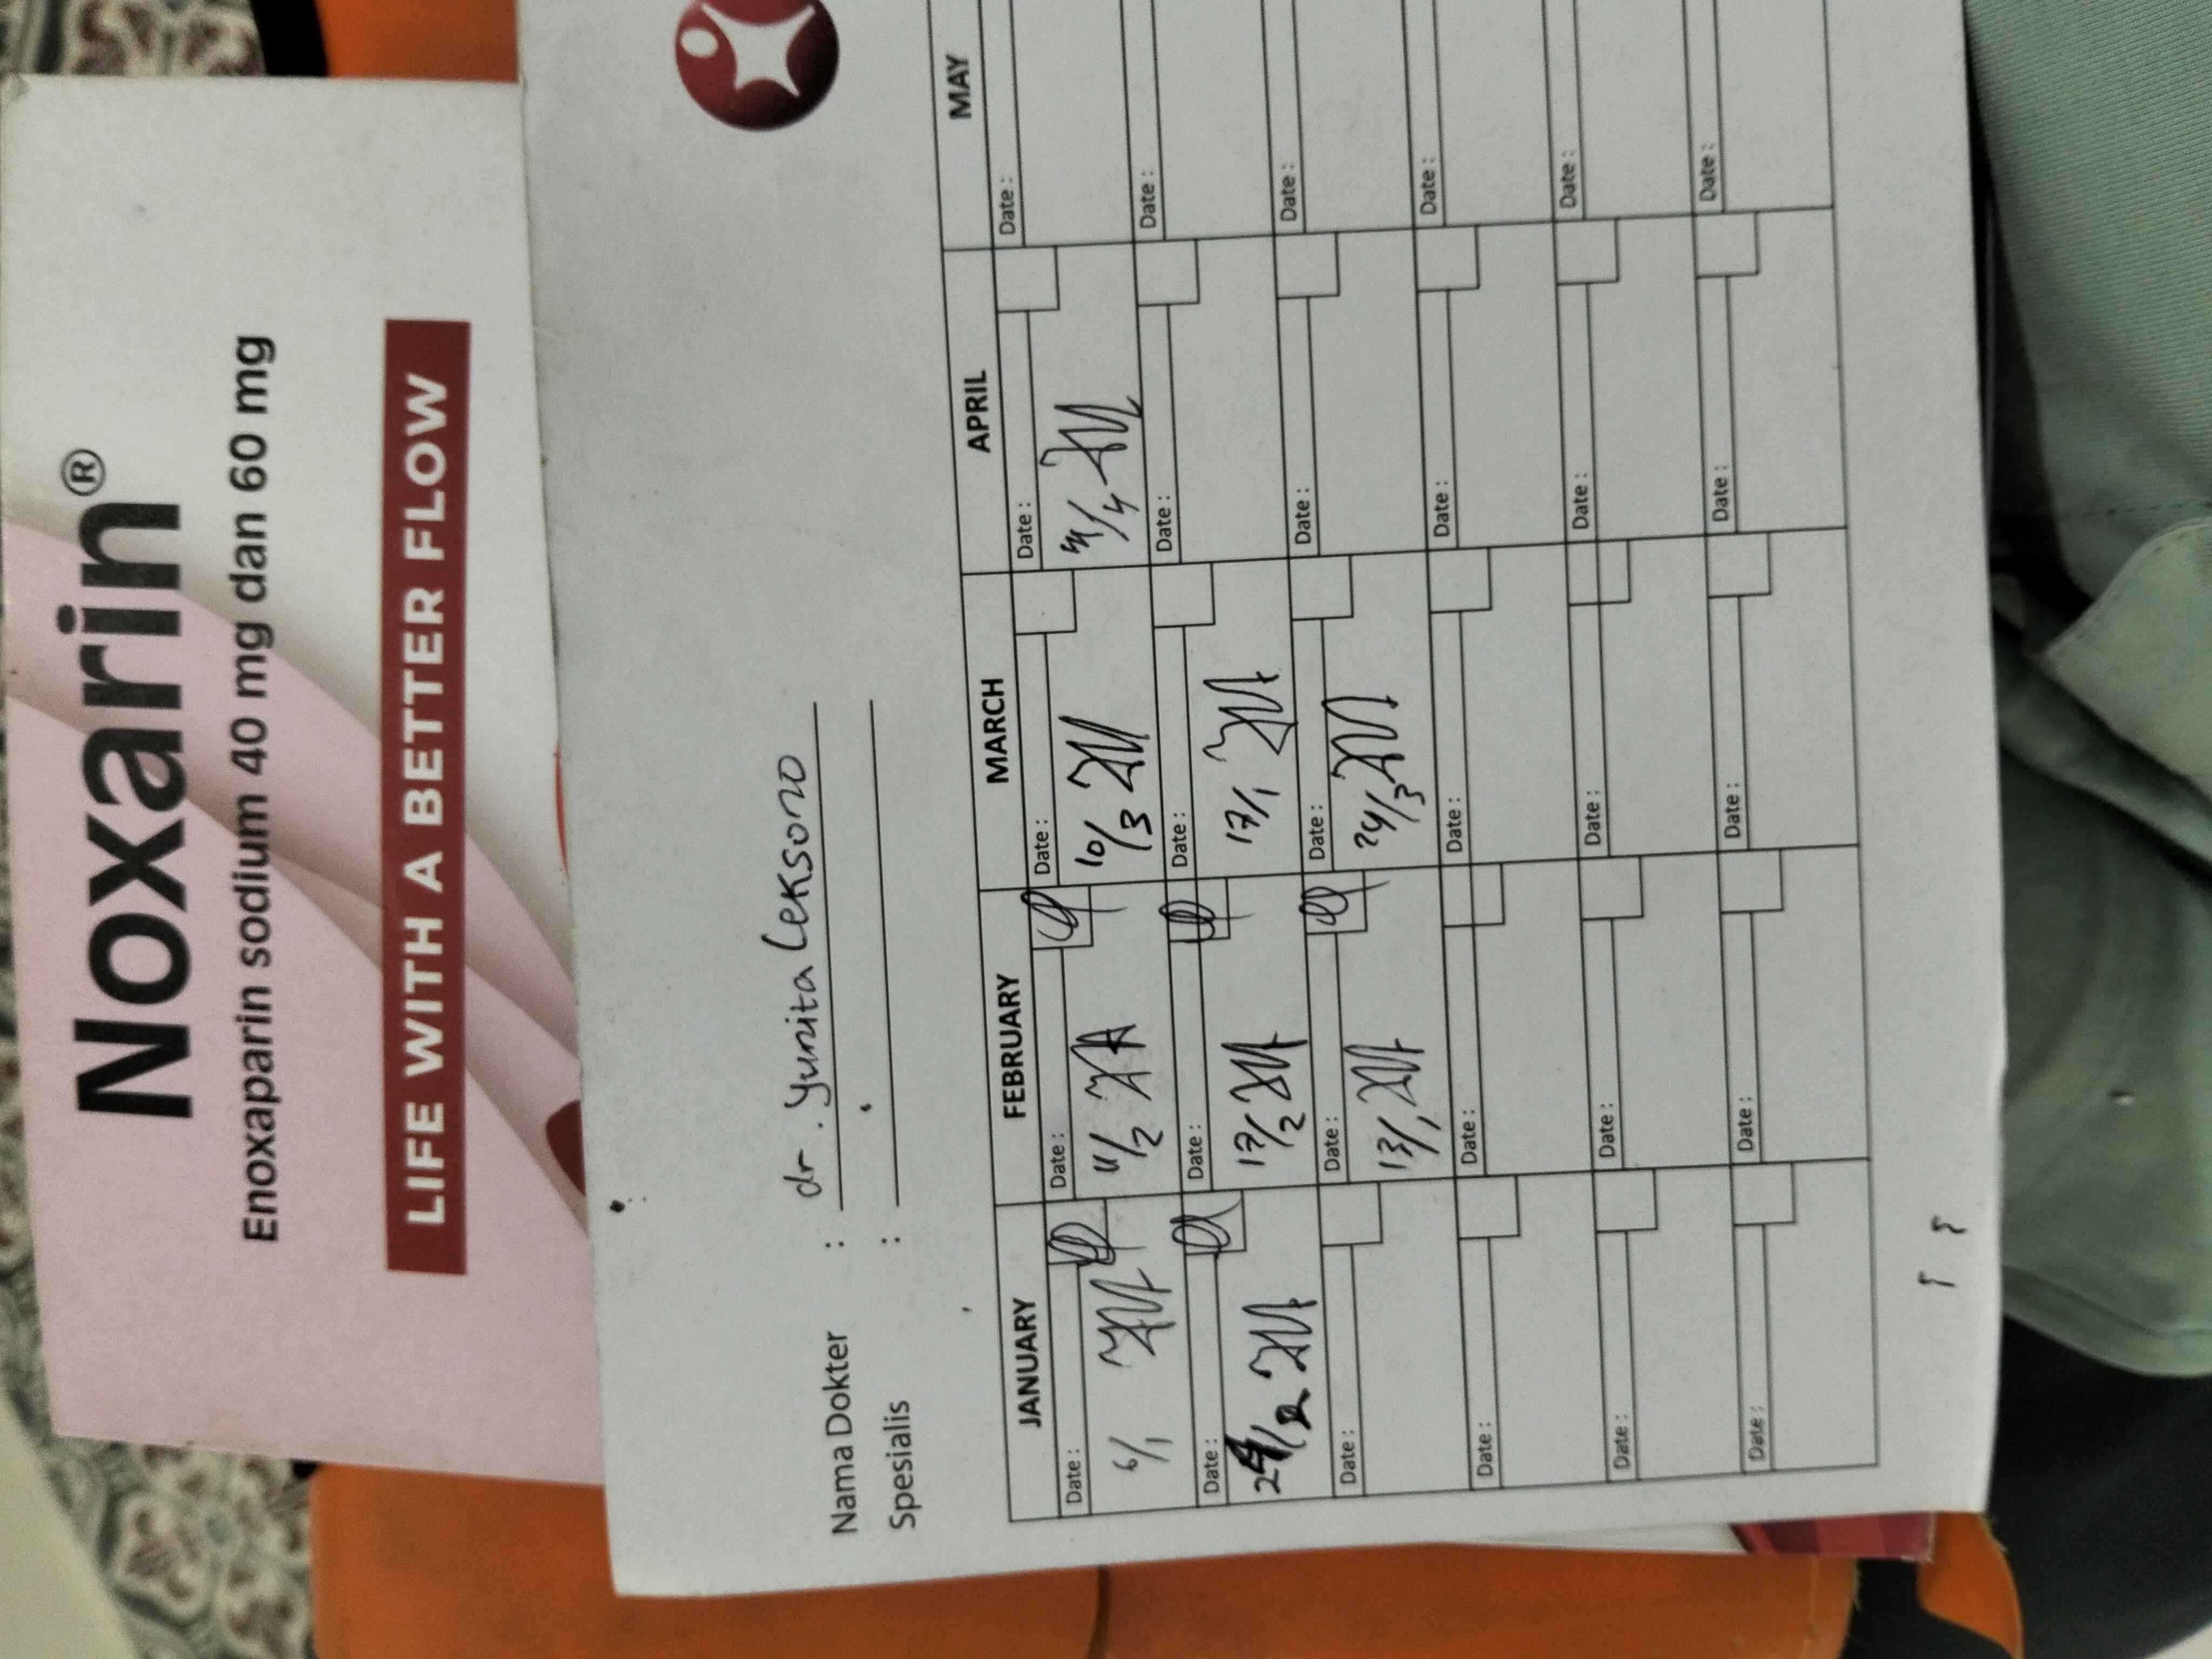 Noxarin®
Enoxaparin sodium 40 mg dan 60 mg
LIFE WITH A BETTER FLOW
Nama Dokter : dr. Yunita Leksono
Spesialis :
JANUARY FEBRUARY MARCH APRIL MAY
Date : Date : Date : Date : Date :
6/1 11/2 10/3 /4
Date : Date : Date : Date : Date :
24/2 17/2 17/1
Date : Date : Date : Date : Date :
13/1 24/3
Date : Date : Date : Date : Date :
Date : Date : Date : Date : Date :
Date : Date : Date : Date : Date :